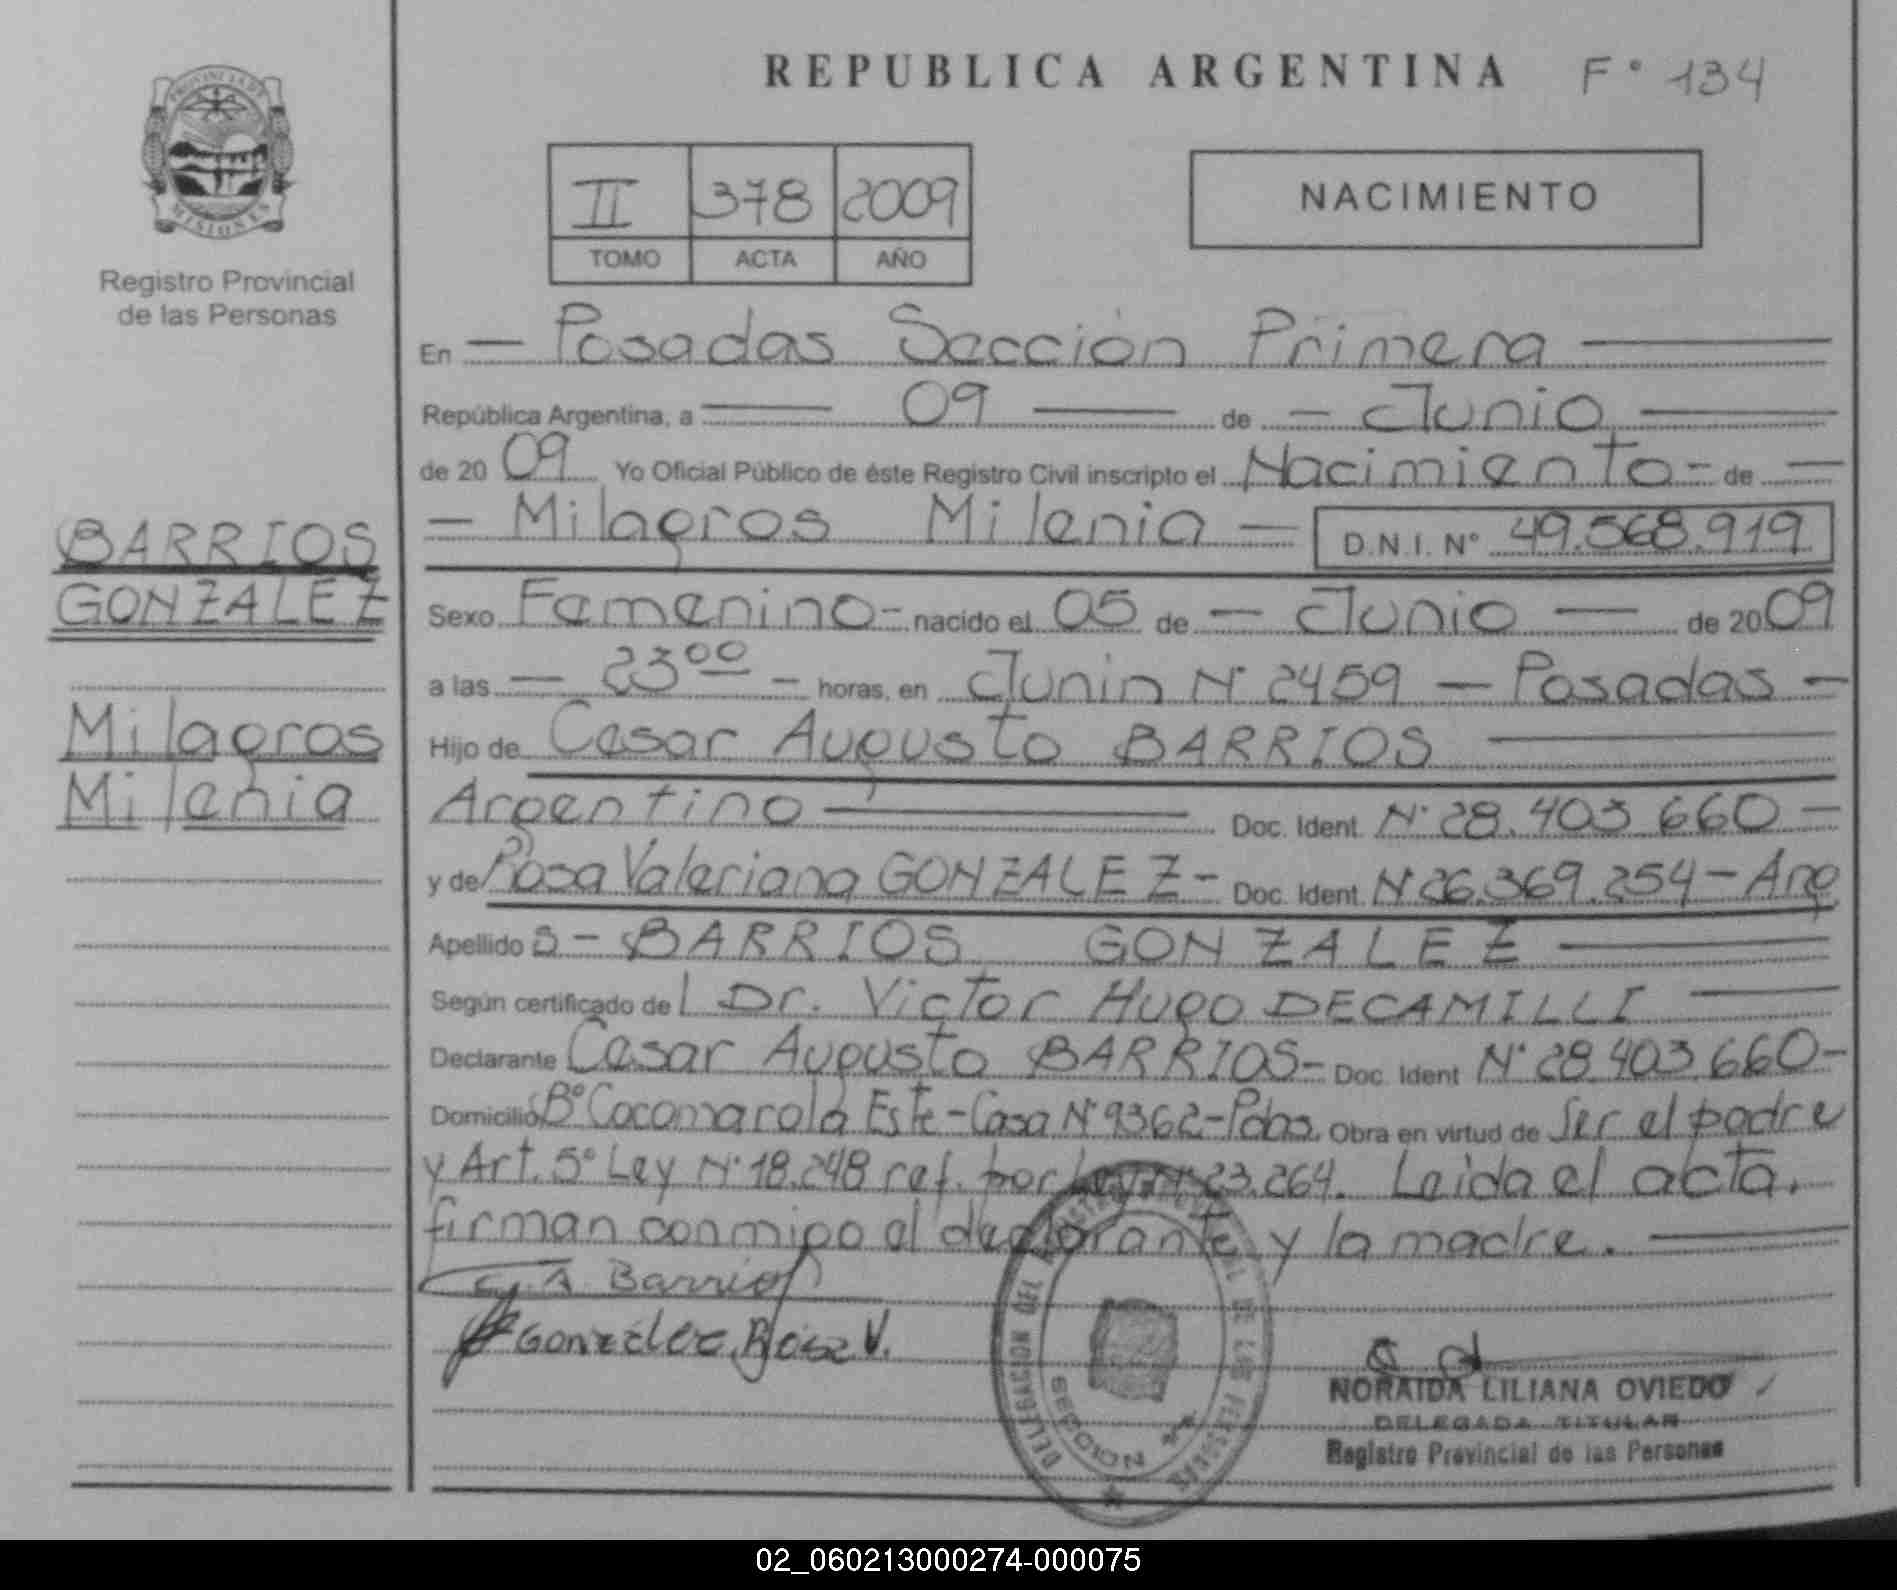 REPUBLICA ARGENTINA F° 134
PROVINCIA DE
MISIONES
Registro Provincial
de las Personas
II 378 2009
TOMO ACTA AÑO
NACIMIENTO
BARRIOS
GONZALEZ
Milagros
Milenia
En — Posadas Sección Primera —
República Argentina, a — 09 — de — Junio —
de 20 09 Yo Oficial Público de éste Registro Civil inscripto el Nacimiento - de —
— Milagros Milenia — D.N.I. N° 49.568.919
Sexo Femenino - nacido el 05 de — Junio — de 20 09
a las — 23 00 — horas, en Junin N° 2459 — Posadas —
Hijo de Cesar Augusto BARRIOS —
Argentino — Doc. Ident. N° 28.403.660 —
y de Rosa Valeriana GONZALEZ - Doc. Ident. N° 26.369.254 - Arg
Apellido s - BARRIOS GONZALEZ —
Según certificado de l Dr. Victor Hugo DECAMILLI —
Declarante Cesar Augusto BARRIOS - Doc. Ident N° 28.403.660 -
Domicilio B° Cocomarola Este - Casa N° 9362 - Pdas. Obra en virtud de Ser el padre
y Art. 5° Ley N° 18.248 ref. por Ley N° 23.264. Leida el acta,
firman conmigo el declarante y la madre. —
C. A. Barrios
Gonzalez Rosa V.
DELEGACION DEL REGISTRO PROVINCIAL DE LAS PERSONAS
SECCION
NORAIDA LILIANA OVIEDO
DELEGADA TITULAR
Registro Provincial de las Personas
02_060213000274-000075